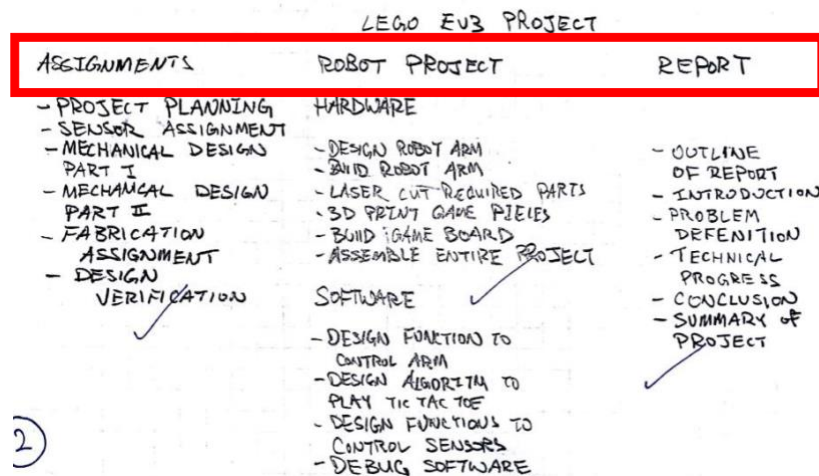 LEGO EV3 PROJECT
ASSIGNMENTS
- PROJECT PLANNING
- SENSOR ASSIGNMENT
- MECHANICAL DESIGN
PART I
- MECHANICAL DESIGN
PART II
- FABRICATION
ASSIGNMENT
- DESIGN
VERIFICATION
ROBOT PROJECT
HARDWARE
- DESIGN ROBOT ARM
- BUILD ROBOT ARM
- LASER CUT REQUIRED PARTS
- 3D PRINT GAME PIECES
- BUILD GAME BOARD
- ASSEMBLE ENTIRE PROJECT
SOFTWARE
- DESIGN FUNCTION TO
CONTROL ARM
- DESIGN ALGORITM TO
PLAY TIC TAC TOE
- DESIGN FUNCTIONS TO
CONTROL SENSORS
- DEBUG SOFTWARE
REPORT
- OUTLINE
OF REPORT
- INTRODUCTION
- PROBLEM
DEFENITION
- TECHNICAL
PROGRESS
- CONCLUSION
- SUMMARY OF
PROJECT
2